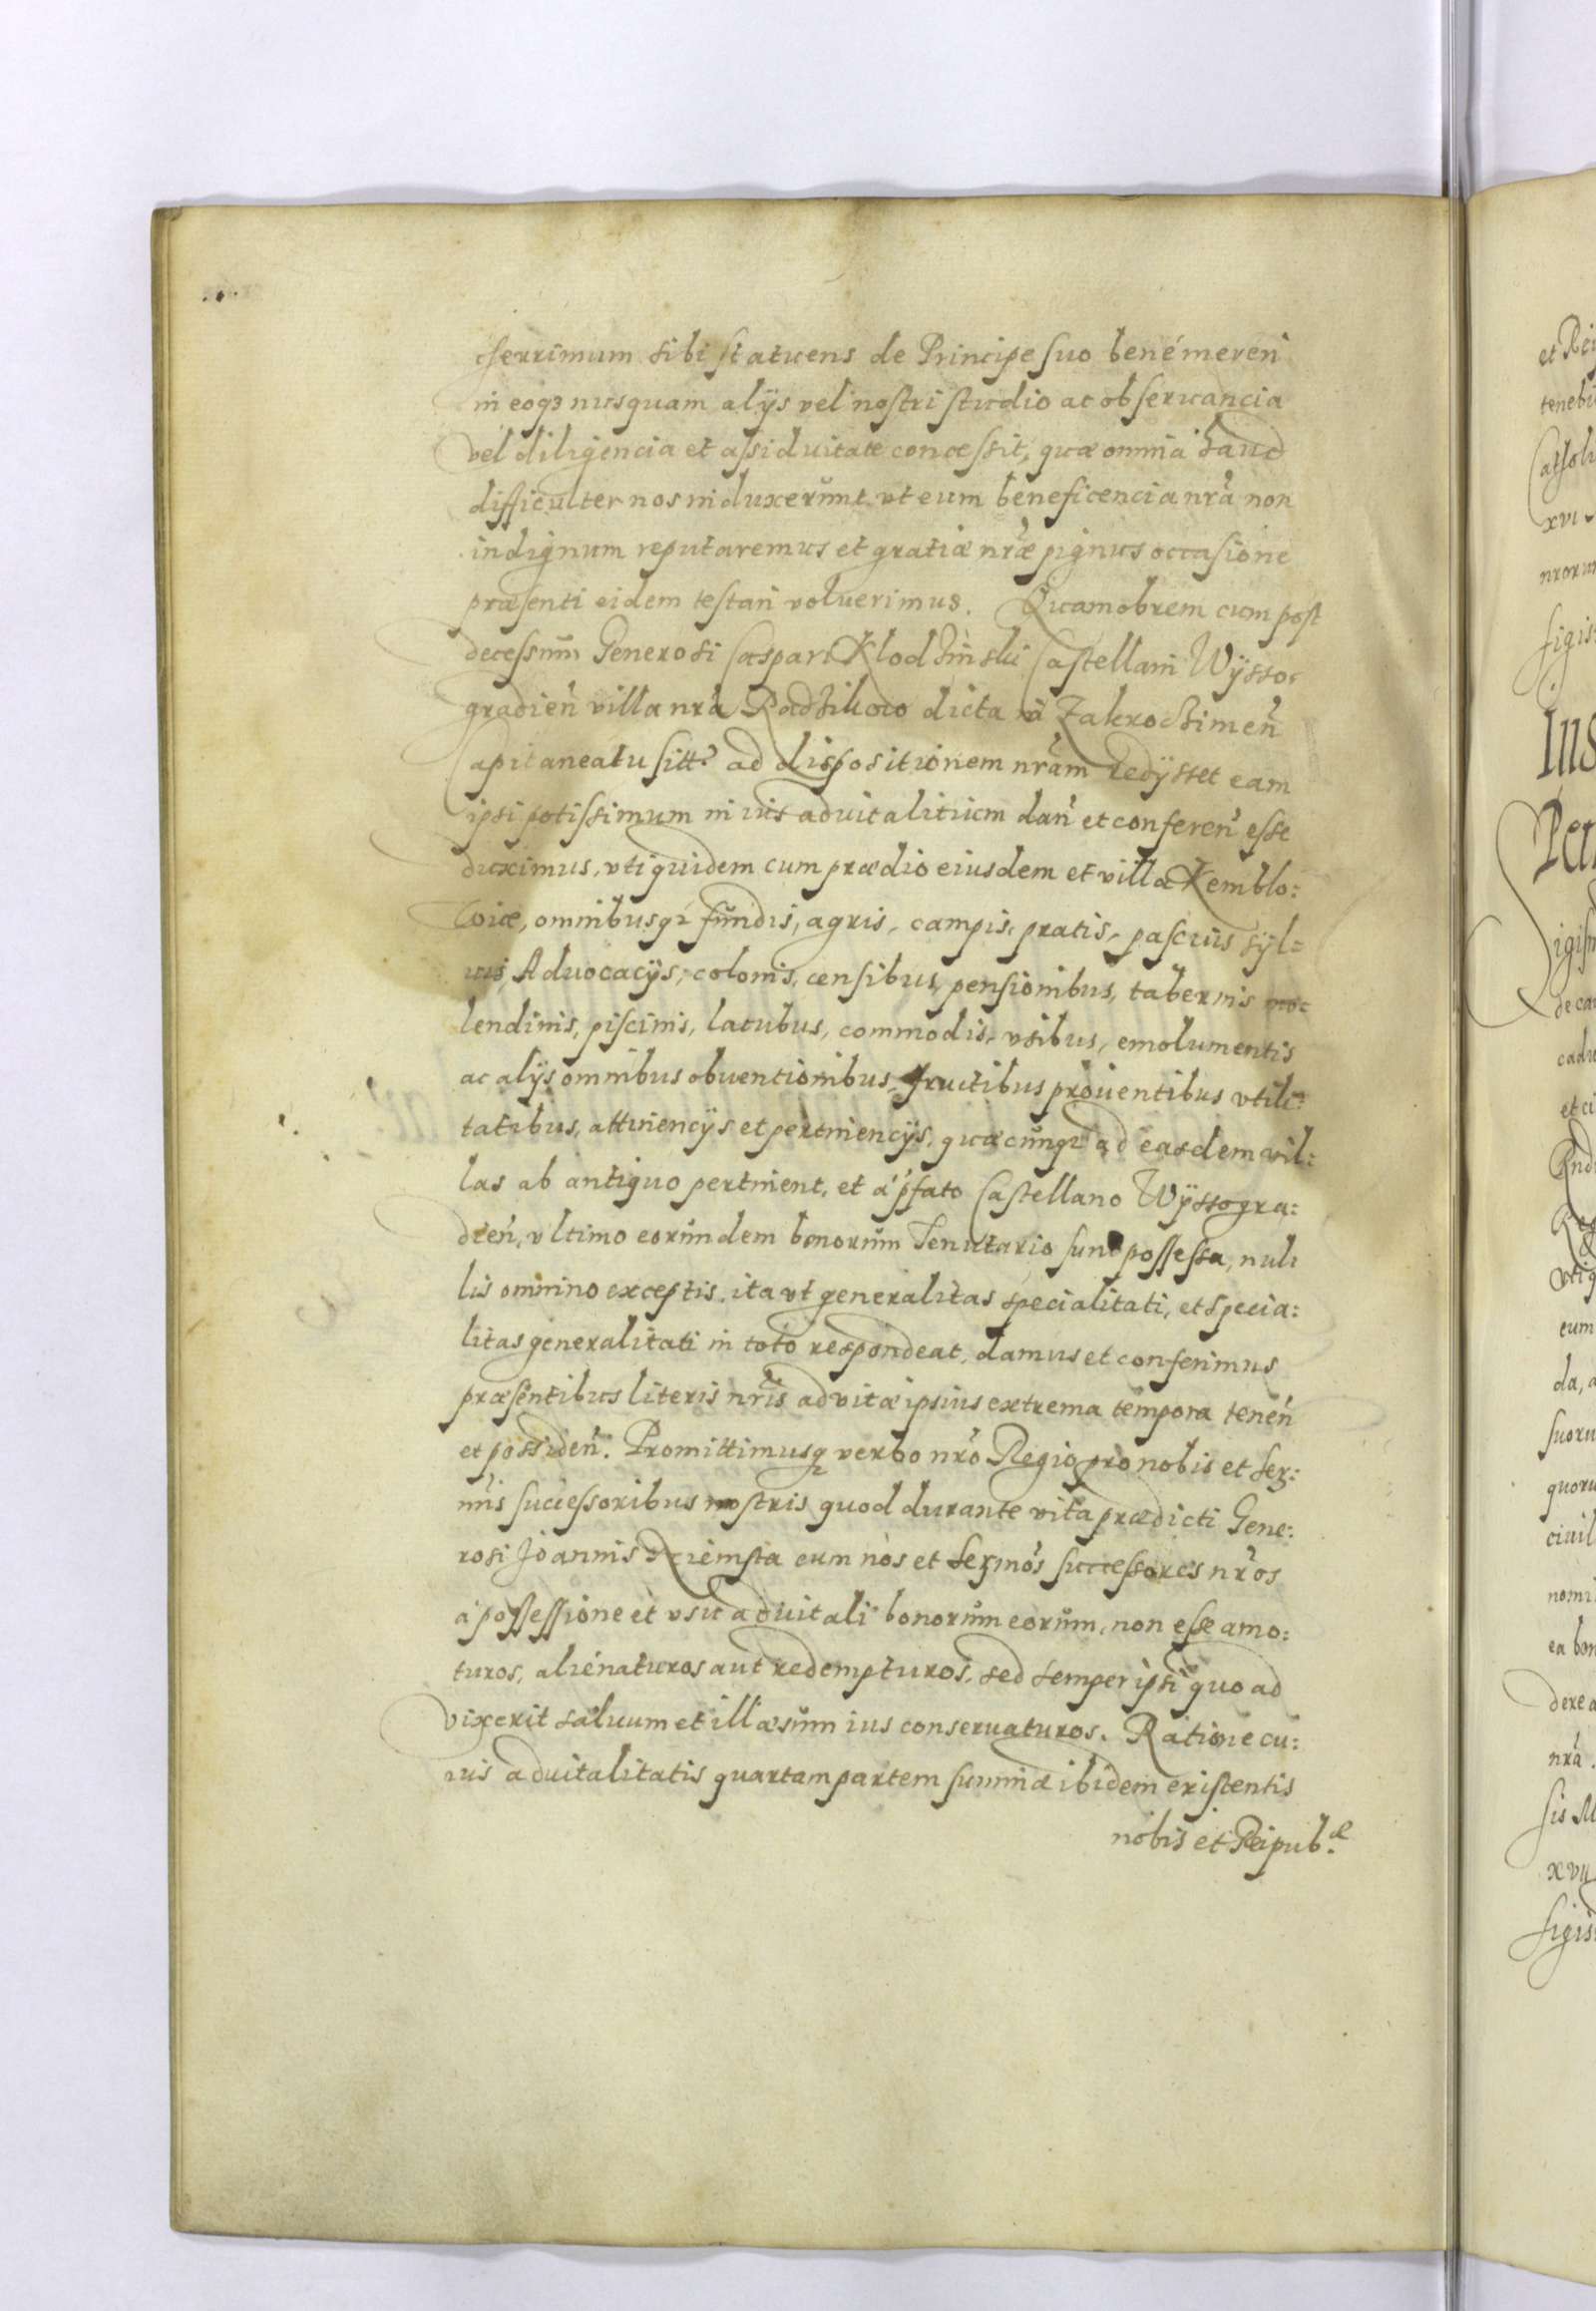 cherrimum sibi statuens de Principe suo bene mereri
in eoq3 nusquam alÿs vel nostri studio ac obseruancia
vel diligencia et assiduitate concessit, quæ omnia haud
difficulter nos induxerunt vt eum beneficencia nrã non
indignum reputaremus et gratiæ nræ pignus occasione
præsenti eidem testari voluerimus. Quamobrem cum post
decessum Generosi Caspari Klodzinski Castellani Wÿsso,
gradien̄ villa nrã Radzikowo dicta in Zakrochimen̄
Capitaneatu sitta ad dispositionem nrãm redÿsset eam
ipsi potissimum in ius aduitalitium dan̄ et conferen̄ esse
duximus, vti quidem cum prædio eiusdem et villa Kemblo:
wicæ, omnibusq2 fundis, agris, campis, pratis, pascuis sÿl:
uis, Aduocacÿs, colonis, censibus, pensionibus, tabernis mo:
lendinis, piscinis, lacubus, commodis, vsibus, emolumentis
ac alÿs omnibus obuentionibus, fructibus prouentibus vtili:
tatibus, attinencÿs et pertinencÿs, quæcunq2 ad easdem vil:
las ab antiquo pertinent, et á pfato Castellano Wÿssogra:
dien̄, vltimo eorundem bonorum Tenutario sunt possessa, nul:
lis omnino exceptis, ita vt generalitas specialitati, et specia:
litas generalitati in toto respondeat, damus et conferimus
præsentibus literis nrĩs ad vitæ ipsius extrema tempora tenen̄
et possiden̄. Promittimusq2 verbo nrõ Regio pro nobis et Ser:
mis successoribus nostris quod durante vita prædicti Gene:
rosi Joannis eum nos et Sermos successores nrõs
á possessione et vsu aduitali bonorum eorum, non esse amo:
turos, alienaturos aut redempturos, sed semper ipsi quo ad
vixerit saluum et illæsum ius conseruaturos. Ratione cu:
ius aduitalitatis quartam partem summæ ibidem existentis
nobis et Reipub.æ
et Re
tenebi
Cathol
xvi
nrorum
sigis
Ins
igism
de ca
cadu
et ci
And
Reg
vtiq
eum
da, a
suoru
quoru
ciuil
nomi
ea bon
dere a
nrã.
sis M
xvii
Sigis